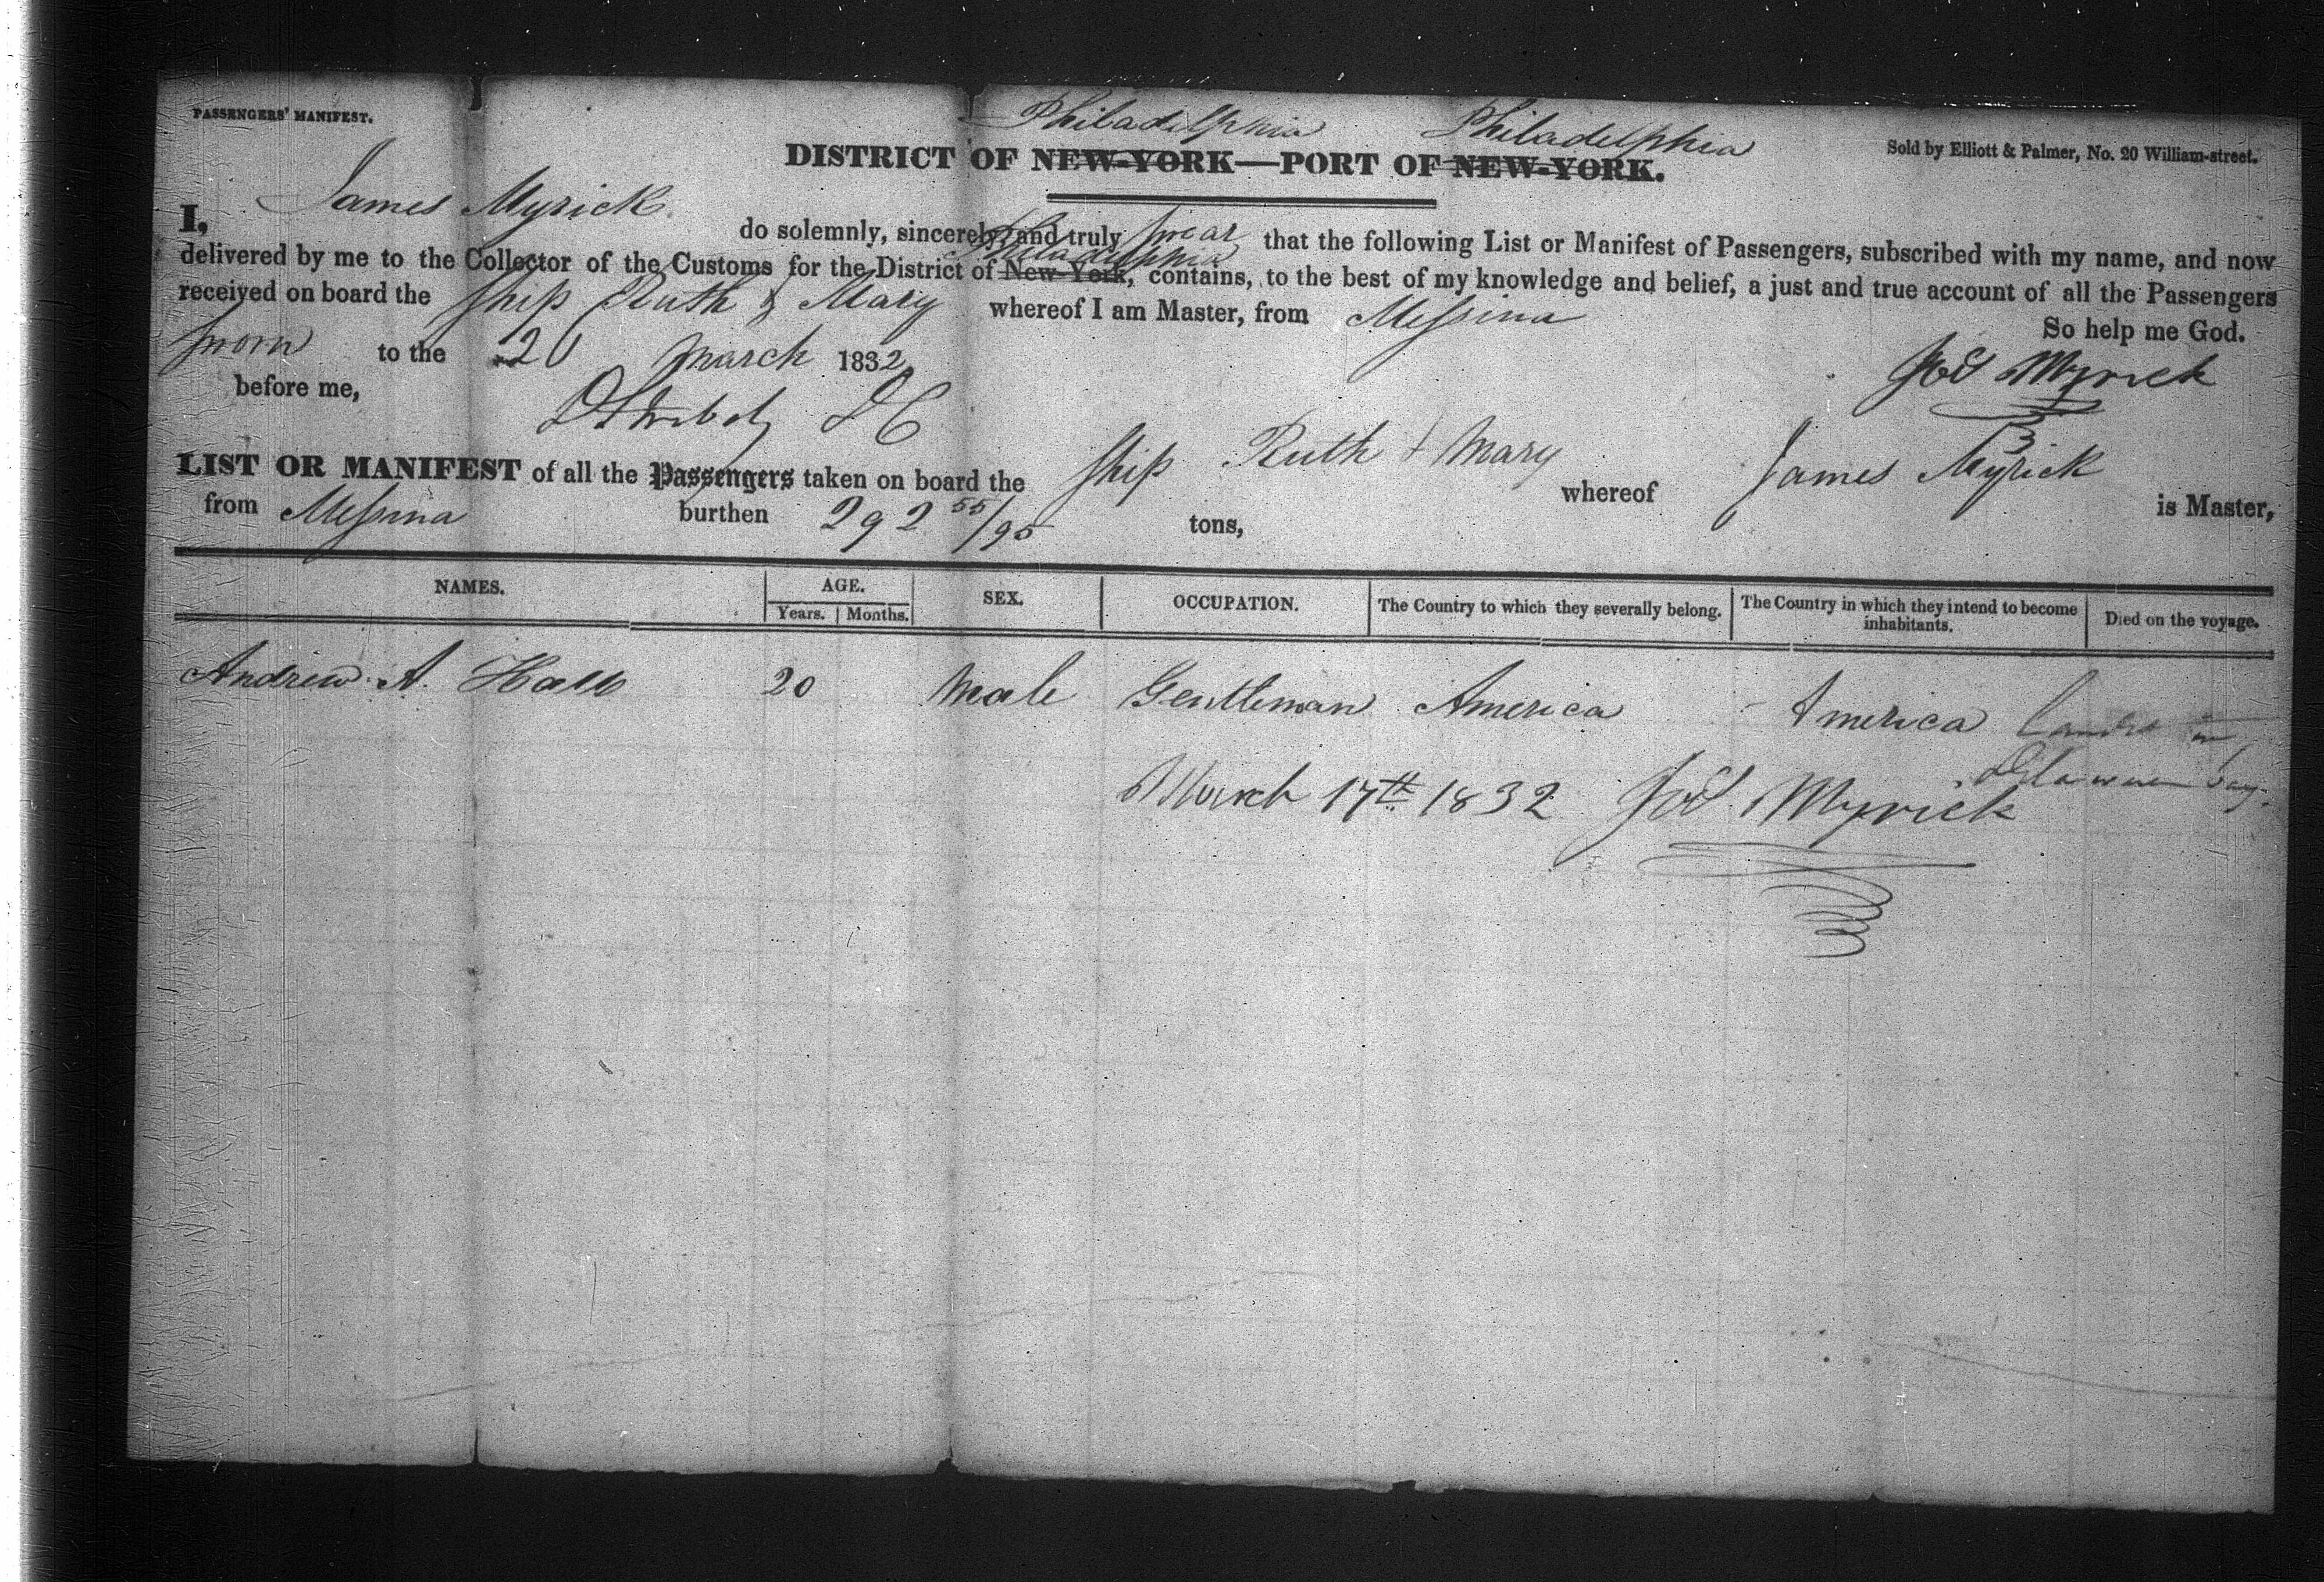 PASSENGERS' MANIFEST.
Philadelphia Philadelphia
DISTRICT OF NEW-YORK—PORT OF NEW-YORK.
Sold by Elliott & Palmer, No. 20 William-street.
I, James Myrick do solemnly, sincerely, and truly swear that the following List or Manifest of Passengers, subscribed with my name, and now
Philadelphia
delivered by me to the Collector of the Customs for the District of New-York, contains, to the best of my knowledge and belief, a just and true account of all the Passengers
received on board the Ship Ruth & Mary whereof I am Master, from Messina
So help me God.
sworn to the 20 March 1832
Jas Myrick
before me,
D C
LIST OR MANIFEST of all the Passengers taken on board the Ship Ruth & Mary whereof James Myrick is Master,
from Messina burthen 292 55/95 tons,
NAMES. AGE. SEX. OCCUPATION. The Country to which they severally belong. The Country in which they intend to become inhabitants. Died on the voyage.
Years. Months.
Andrew A. Hall 20 Male Gentleman America America Landed in
Delaware bay.
March 17th 1832 Jas Myrick